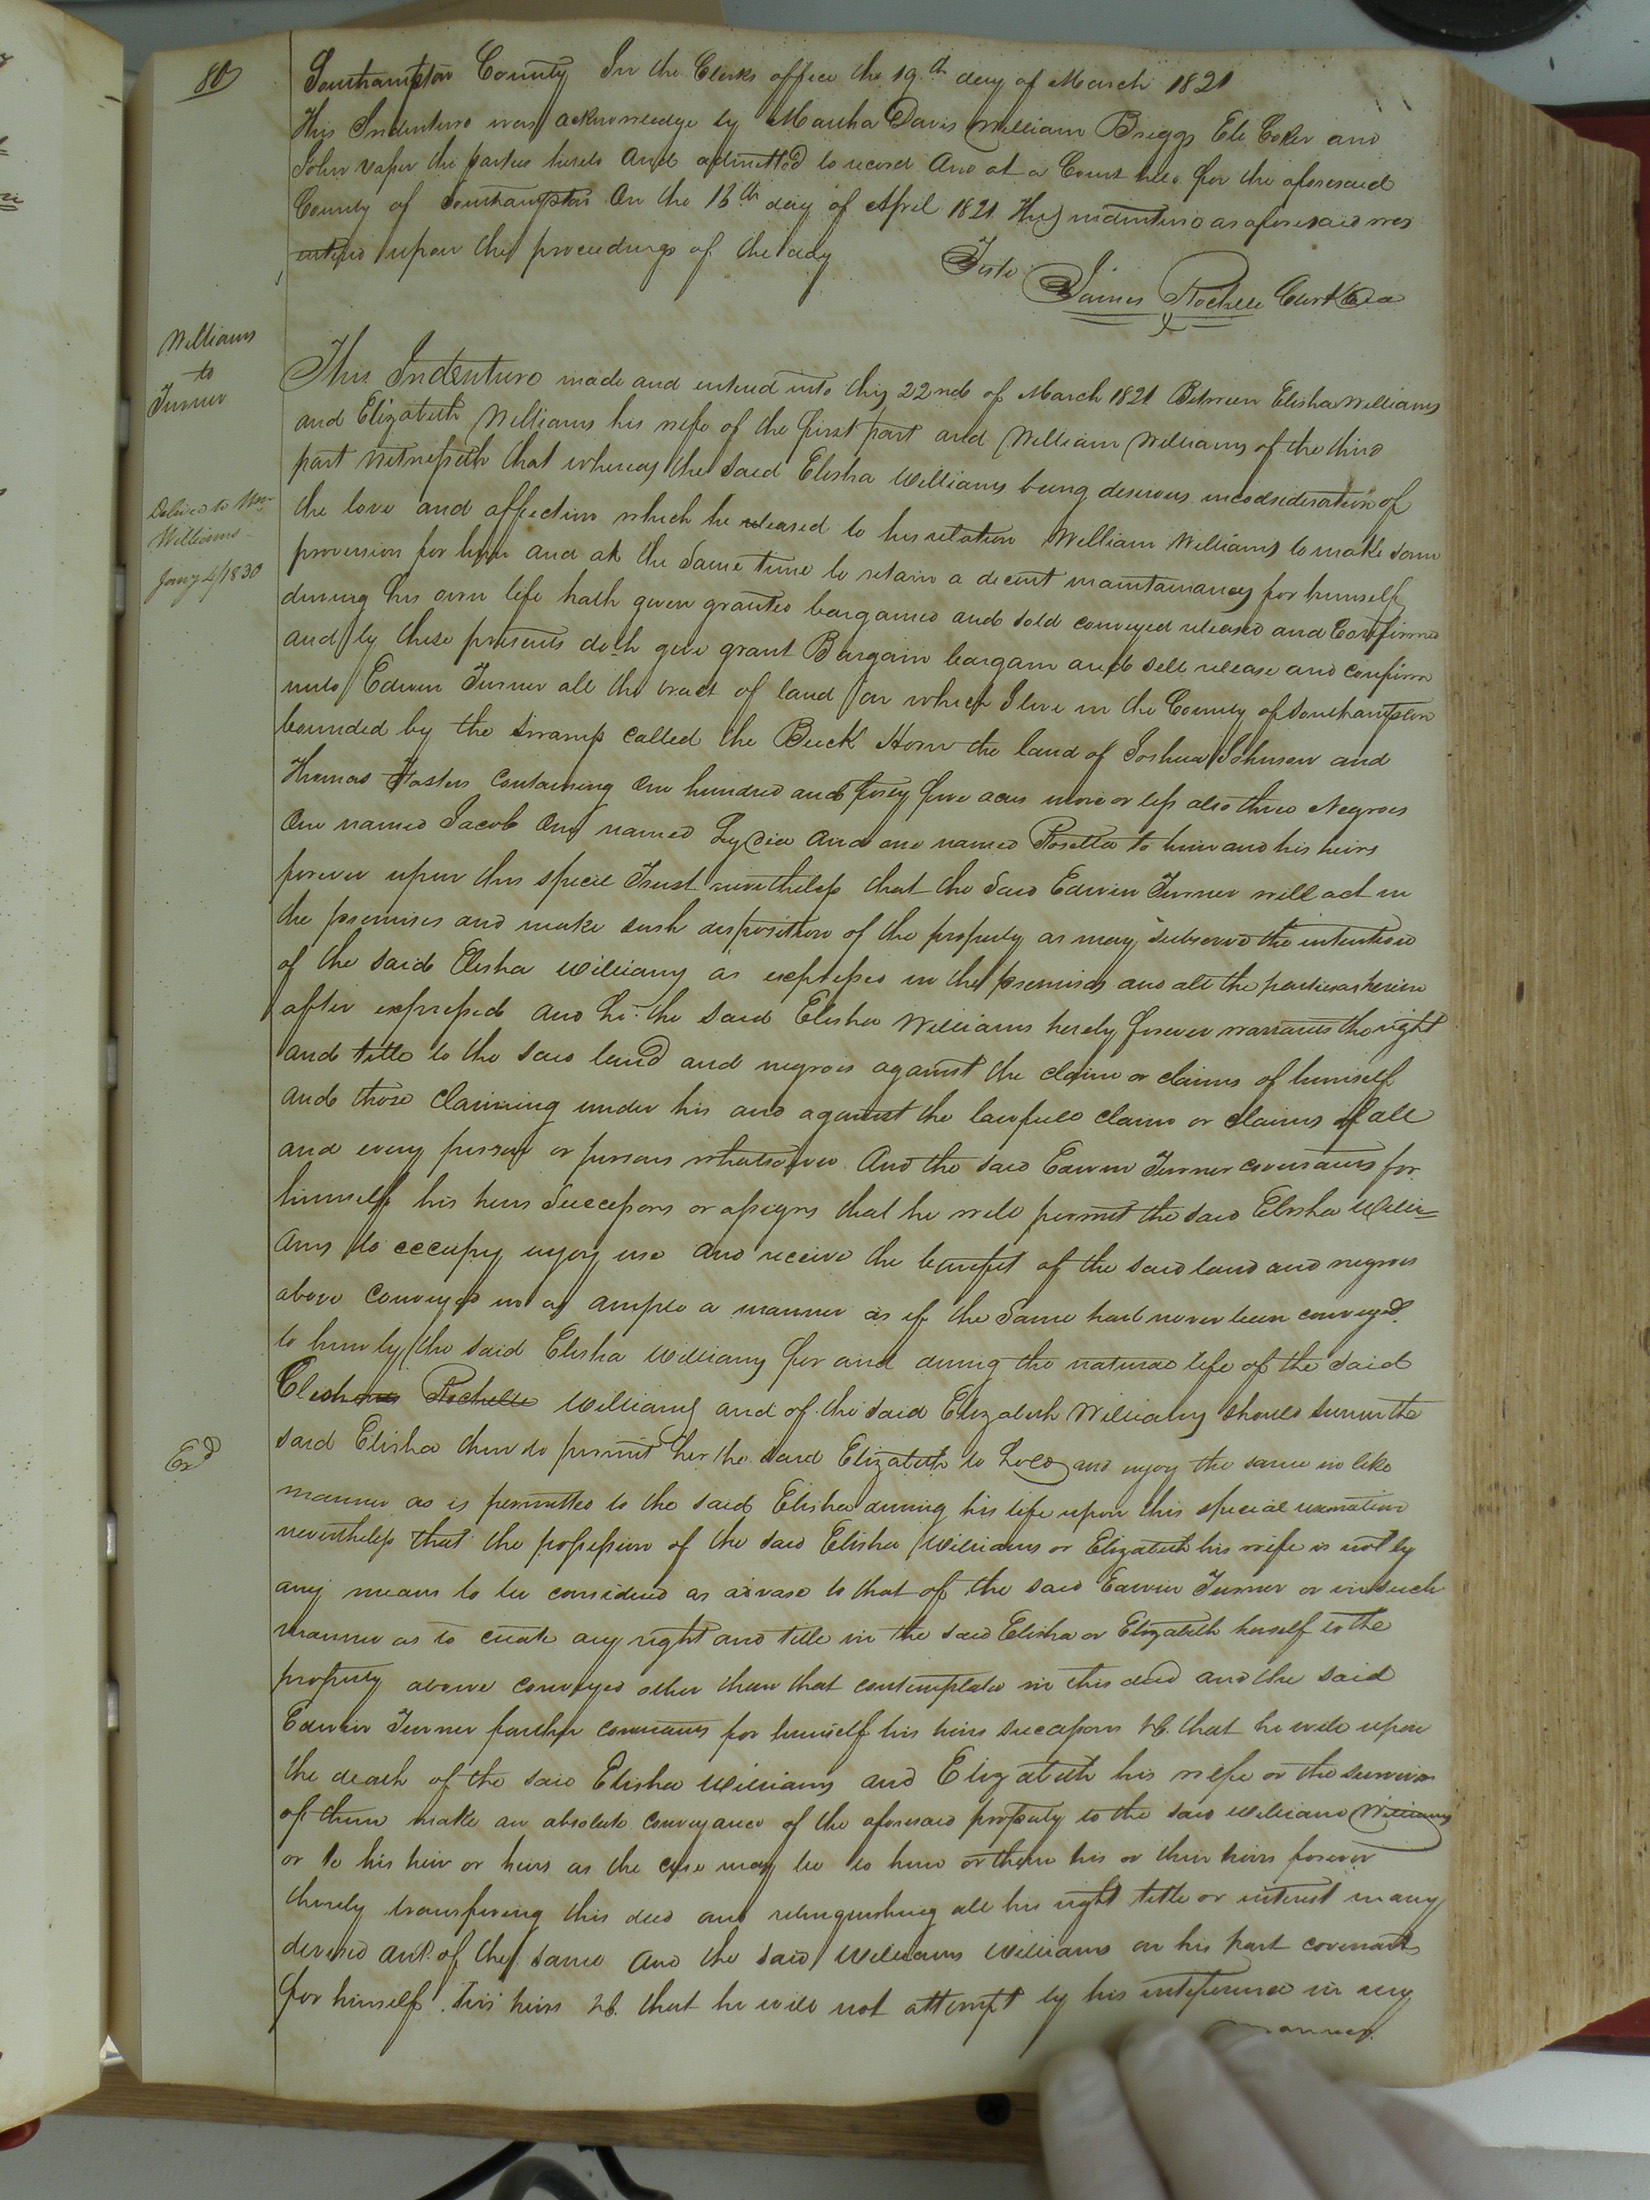 80
Southampton County In the Clerks office the 19th day of March 1821
This Indenture was acknowledge by Martha Davis William Briggs Eli Coker and
John Vaser the parties hereto And admitted to record And at a Court held for the aforesaid
County of Southampton On the 16th day of April 1821 This indenture as aforesaid was
entered upon the proceedings of the day
Teste
James Rochelle Curt
Williams
to
Turner
This Indenture made and entered into this 22nd of March 1821 Between Elisha Williams
and Elizabeth Williams his wife of the first part and William Williams of the third
part Witnesseth that whereas the said Elisha Williams being desirous in considideration of
Delivered to Wm
Williams
Jany 4/1830
the love and affection which he to his relation William Williams to make some
provision for him and at the Same time to retain a decent maintainancy for himself
during his own life hath given granted bargained and sold conveyed released and Confirmed
and by these presents doth give grant Bargain bargain and sell release and confirm
unto Edwin Turner all the tract of land on which I live in the County of Southampton
bounded by the swamp called the Buck Horn the land of Joshua Johnson and
Thomas containing One hundred and forty five acres more or less also three Negroes
One named Jacob One named Lydia And one named Rosetta to him and his heirs
forever upon this special Trust nevertheless that the said Edwin Turner will act in
the premises and make such disposition of the property as may subserve the intention
of the said Elisha Williams as expressed in the premises and all the parties as herein
after expressed And he the said Elisha Williams hereby forever warrants the right
and title to the said land and negroes against the claim or claims of himself
and those Claiming under his and against the lawfull claim or claims of all
and every person or persons whatsoever And the said Edwin Turner covenants for
himself his heirs Successors or assigns that he will permit the said Elisha Willi=
ams to occupy enjoy use and receive the benefit of the said land and negroes
above conveyed in as ample a manner as if the Same had never been conveyed
to him by the said Elisha Williams for and during the natural life of the said
Elisha Rochelle Williams and of the said Elizabeth Williams should survive the
Exd
said Elisha then to permit her the said Elizabeth to hold and enjoy the same in like
manner as is permitted to the said Elisha during his life upon this special
nevertheless that the possession of the said Elisha Williams or Elizabeth his wife is not by
any means to be considered as advase to that of the said Edwin Turner or in such
manner as to create any right and title in the said Elisha or Elizabeth herself to the
property above conveyed other than that contemplated in this deed and the said
Edwin Turner further covenants for himself his heirs successors &c. that he will upon
the death of the said Elisha Williams and Elizabeth his wife or the survivor
of them make an absolute conveyance of the aforesaid property to the said William Williams
or to his heir or heirs as the case may be to him or them his or their heirs forever
thereby transfering this deed and relinquishing all his right title or interest in any
of the same And the said Williams Williams on his part covenants
for himself his heirs &c. that he will not attempt by his in any
manner